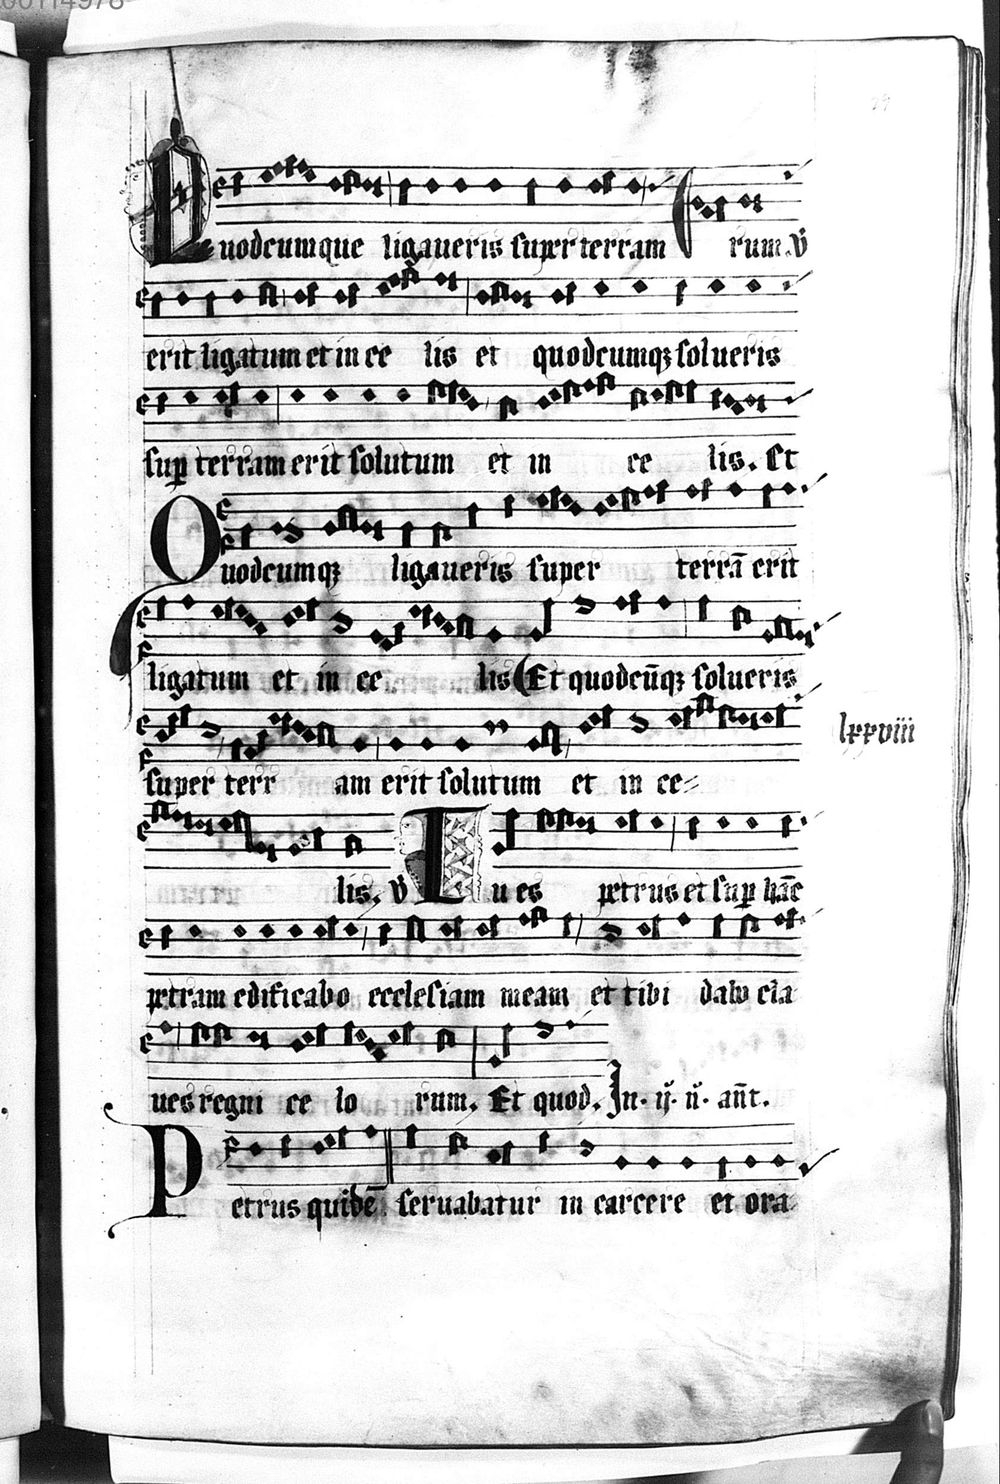 Quodcumque ligaueris super terram rum. v̄
erit ligatum et in ce lis et quodcumqꝫ solueris
suꝑ terram erit solutum et in ce lis. Et
Quodcumqꝫ ligaueris super terrā erit
ligatum et in ce lis Et quodcūqꝫ solueris
super terr am erit solutum et in ce-
lxxviii
lis. v̄ Tu es petrus et suꝑ hāc
petram edificabo ecclesiam meam et tibi dabo cla
ues regni ce lo rum. Et quod. In. ij. n̄. añt.
Petrus quidē seruabatur in carcere et ora-